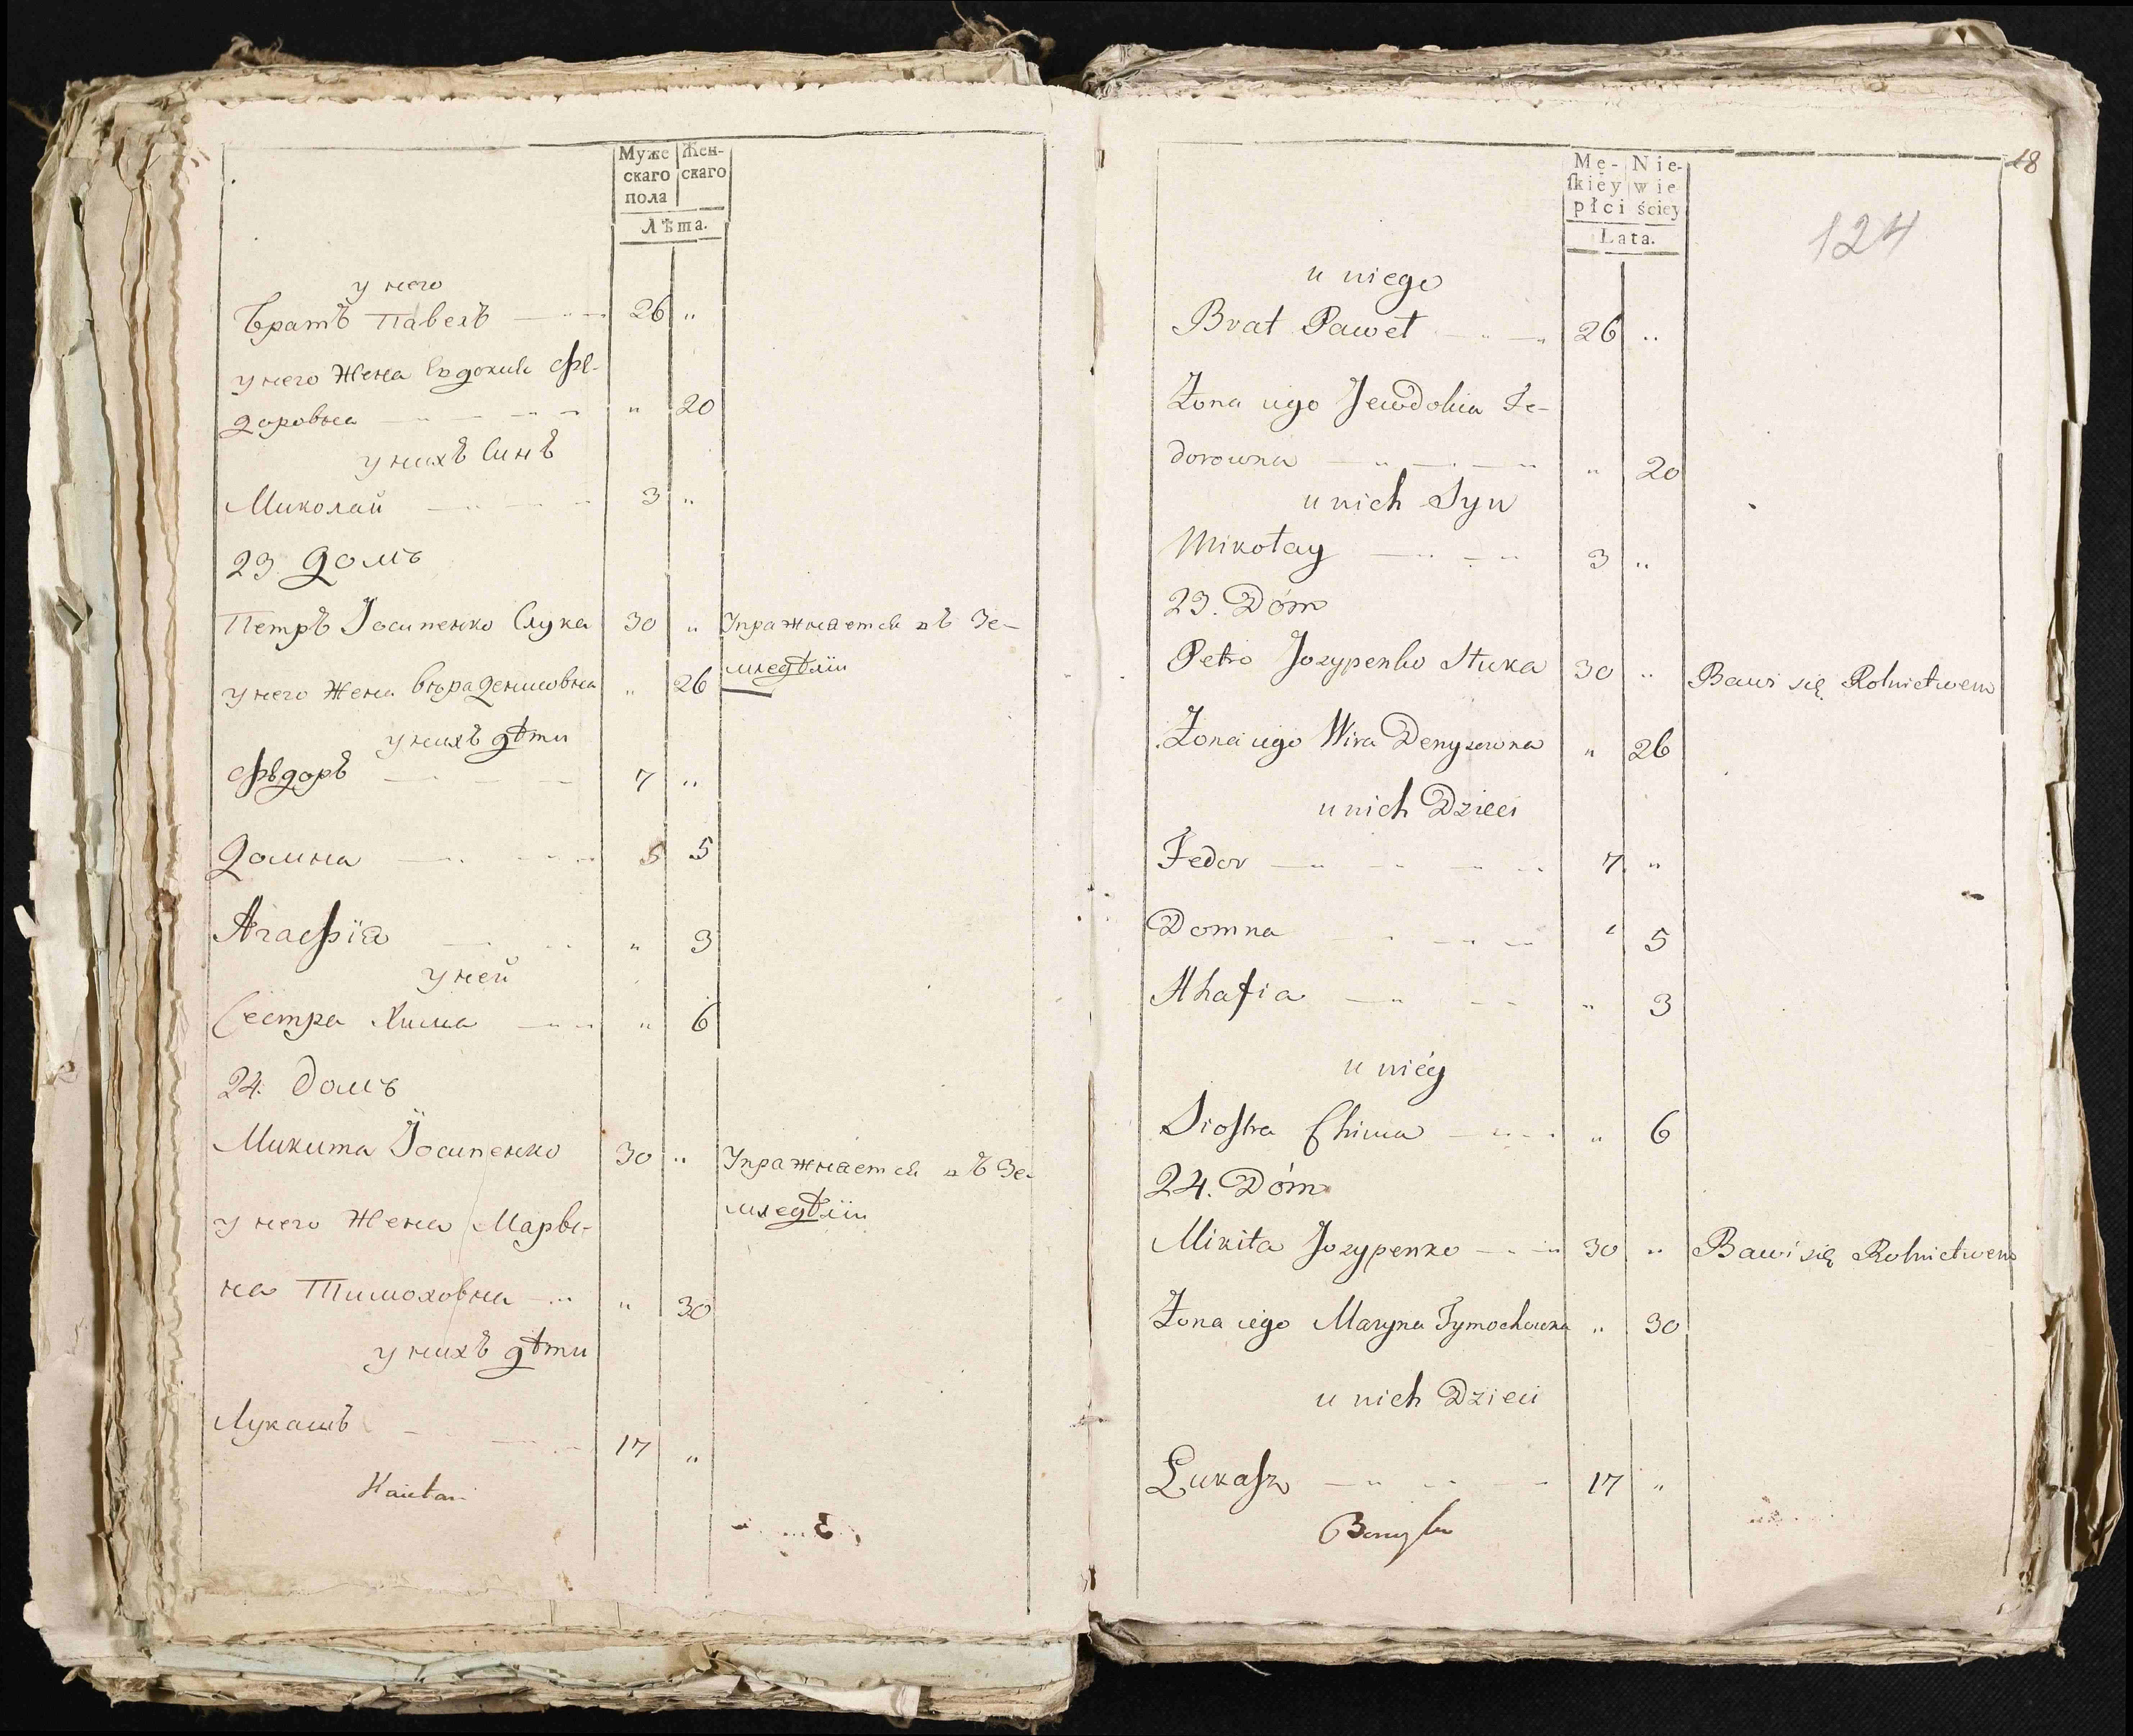 Муже Жен-
скаго скаго
пола
Лѣта.
у него
Братъ Павелъ 26 "
у него Жена Евдокия Фе-
доровна " 20
у нихъ Синъ
Миколай 3 "
23. домъ
Петръ Iосипенко Слука 30 " Упражняется въ Зе-
мледѣлiи
у него Жена Вѣра Денисовна " 26
у нихъ дѣти
Фѣдоръ 7 "
Домна 5 5
Агафiя " 3
у ней
Сестра Хима " 6
24. домъ
Микита Iосипенко 30 " Упражняется въ Зе-
мледѣлiи
у него Жена Мары-
на Тимоховна " 30
у нихъ дѣти
Лукашъ 17 "
18
Mę- Nie-
ſkiéy wie
płci ściey
Lata.
124
u niego
Brat Paweł 26 "
Żona iego Jewdokia Fe-
dorowna " 20
u nich Syn
Mikołay 3 "
23. Dóm
Petro Jozypenko Słuka 30 " Bawi się Rolnictwem
Żona iego Wira Denysowna " 26
u nich Dzieci
Fedor 7 "
Domna " 5
Ahafia " 3
u niéy
Siostra Chima " 6
24. Dóm
Mikita Jozypenko 30 " Bawi się Rolnictwem
Żona iego Maryna Tymochowna " 30
u nich Dzieci
Łukaſz 17 "